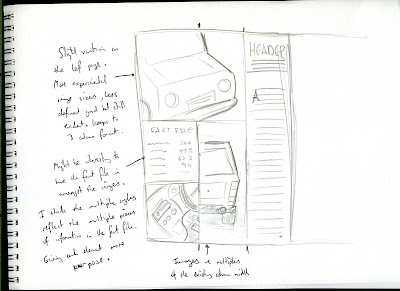 Slight variation on
the left page.
More experimental
image sizes, less
defined grid but still
evident. keeps to
3 column format.
Might be interesting to
have the fact file in
amongst the images.
I think the multiple
reflect the multiple pieces
of information in the fact file.
Giving each element more
purpose.
HEADER
A
FACT FILE
Images in multiples
of the existing column width